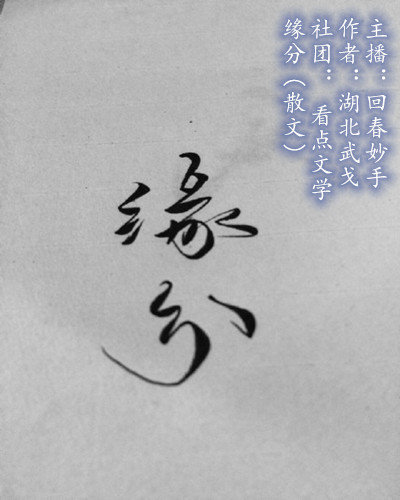 主播：回春妙手
作者：湖北武戈
社团：看点文学
缘分（散文）
缘
分